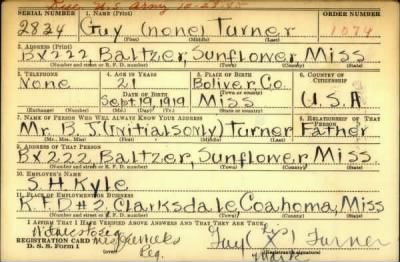 Disc. U.S. Army 10-28-45
SERIAL NUMBER 1. NAME (Print) ORDER NUMBER
2834 Guy (none) Turner 1079
(First) (Middle) (Last)
2. ADDRESS (Print)
Bx222 Baltzer, Sunflower Miss
(Number and street or R. F. D. number) (Town) (County) (State)
3. TELEPHONE 4. AGE IN YEARS 5. PLACE OF BIRTH 6. COUNTRY OF CITIZENSHIP
None 21 Boliver Co.
DATE OF BIRTH
Sept 19, 1919 Miss U.S.A
(Exchange) (Number) (Mo.) (Day) (Yr.) (Town or county) (State or country)
7. NAME OF PERSON WHO WILL ALWAYS KNOW YOUR ADDRESS 8. RELATIONSHIP OF THAT PERSON
Mr. B. J. (Initials only) Turner Father
(Mr., Mrs., Miss) (First) (Middle) (Last)
9. ADDRESS OF THAT PERSON
Bx222 Baltzer, Sunflower Miss.
(Number and street or R. F. D. number) (Town) (County) (State)
10. EMPLOYER'S NAME
S. H Kyle
11. PLACE OF EMPLOYMENT OR BUSINESS
R F D #2, Clarksdale, Coahoma, Miss
(Number and street or R. F. D. number) (Town) (County) (State)
I AFFIRM THAT I HAVE VERIFIED ABOVE ANSWERS AND THAT THEY ARE TRUE.
Witness to Reg.
Reg.
Guy (X) Turner
mark
REGISTRATION CARD
D. S. S. Form 1
(Registrant's signature)